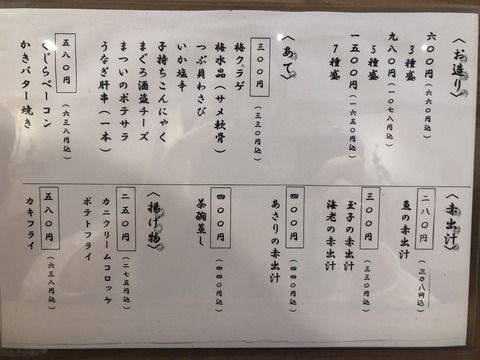 〈お造り〉
六〇〇円(六六〇円込)
3種盛
九八〇円(一〇七八円込)
5種盛
一五〇〇円(一六五〇円込)
7種盛
〈あて〉
三〇〇円(三三〇円込)
梅クラゲ
梅水晶(サメ軟骨)
つぶ貝わさび
いか塩辛
子持ちこんにゃく
まぐろ酒盗チーズ
まついのポテサラ
うなぎ肝串(一本)
五八〇円(六三八円込)
くじらベーコン
かきバター焼き
〈赤出汁〉
二八〇円(三〇八円込)
魚の赤出汁
三〇〇円(三三〇円込)
玉子の赤出汁
海老の赤出汁
四〇〇円(四四〇円込)
あさりの赤出汁
四〇〇円(四四〇円込)
茶碗蒸し
〈揚げ物〉
二五〇円(二七五円込)
カニクリームコロッケ
ポテトフライ
五八〇円(六三八円込)
カキフライ